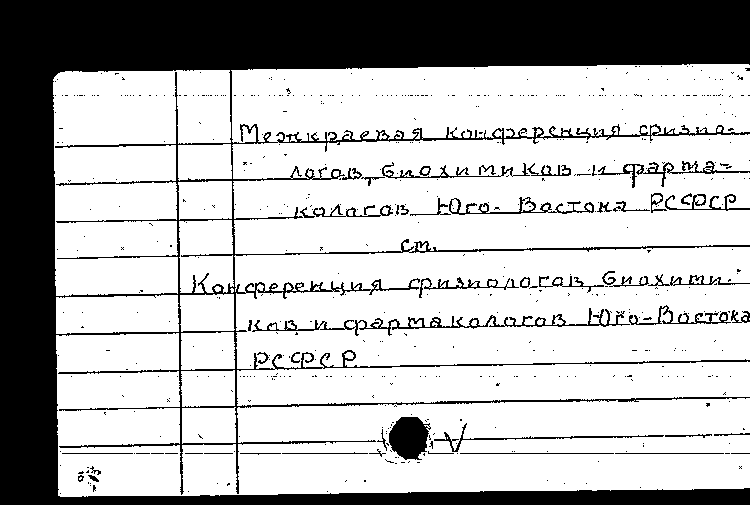 Межкраевая конференция физио-
логов, биохимиков и фарма-
кологов Юго-Востока РСФСР
см.
Конференция физиологов, биохими-
ков и фармакологов Юго-Востока
РСФСР